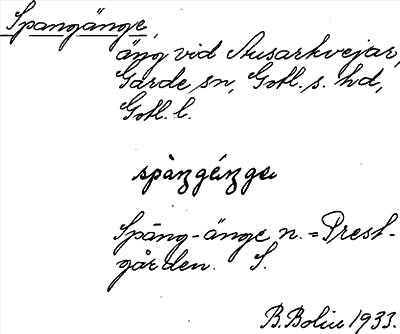 Spangänge,
äng vid Ausarkvejar,
Garde sn, Gotl. s. hd,
Gotl. l.
spàŋgéŋgα
Spāng-änge n. = Prest-
gården. S.
B. Bolin 1933.